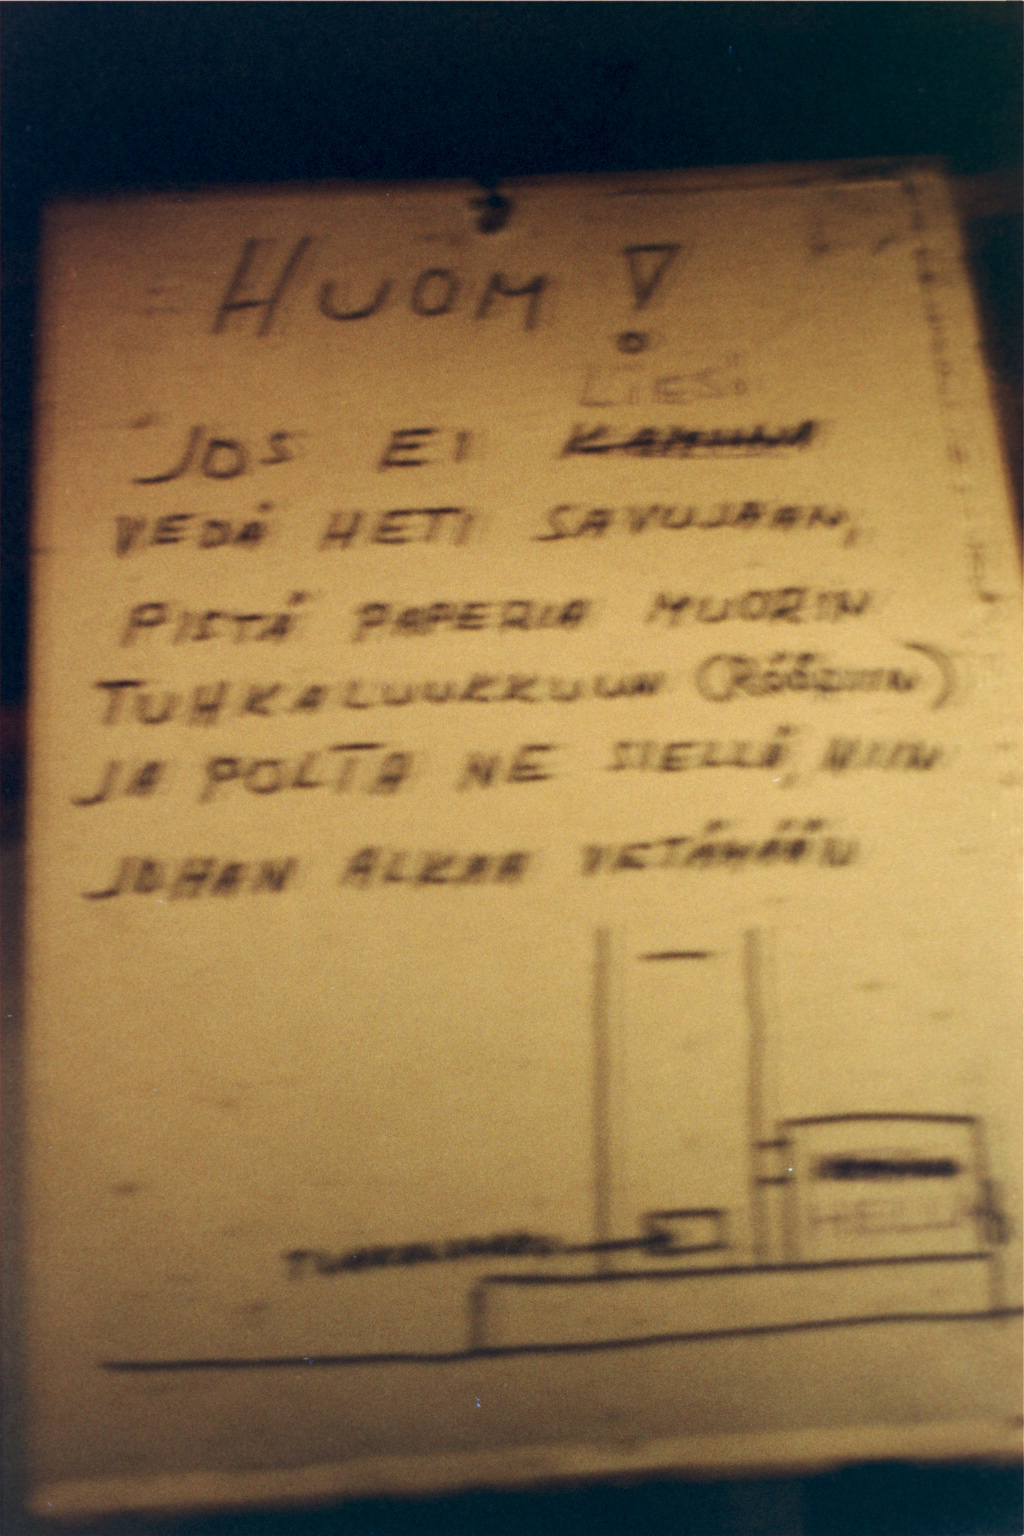 HUOM!
LIESI
JOS EI KAMIINA
VEDÄ HETI SAVUJAAN,
PISTÄ PAPERIA MUORIN
TUHKALUUKKUUN (RÖÖRIIN)
JA POLTA NE SIELLÄ, NIIN
JOHAN ALKAA VETÄMÄÄN
HELLA
TUHKALUUKKU